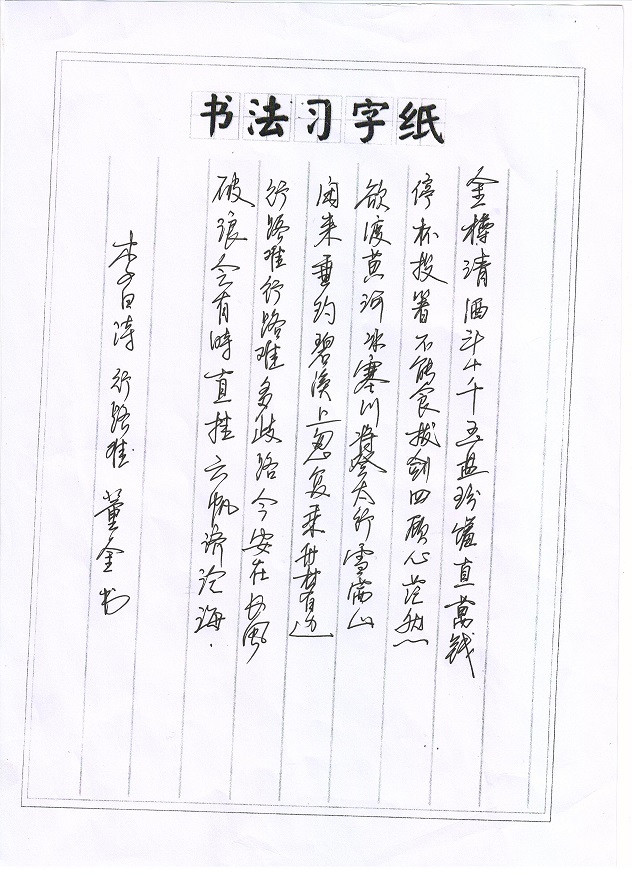 书法习字纸
金樽清酒斗十千玉盘珍馐直万钱
停杯投箸不能食拔剑四顾心茫然
欲渡黄河冰塞川将登太行雪满山
闲来垂钓碧溪上忽复乘舟梦日边
行路难行路难多歧路今安在长风
破浪会有时直挂云帆济沧海.
李白诗 行路难 董金书